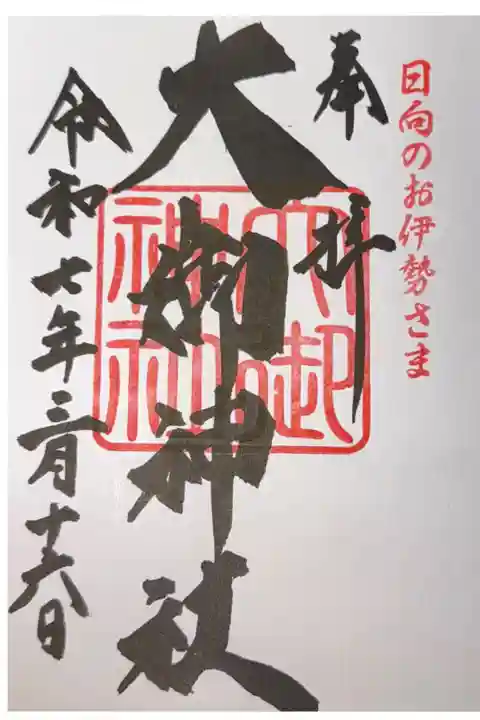 日向のお伊勢さま
奉拝
大御神社
令和七年三月十六日
大御
神社